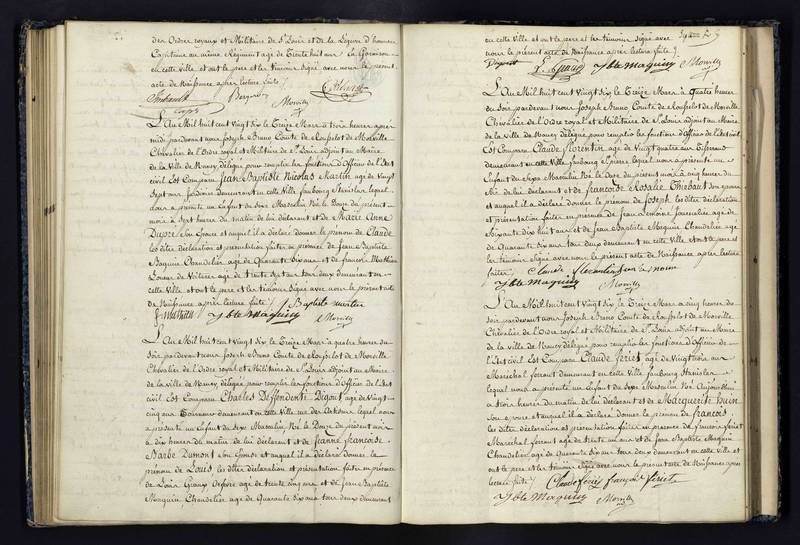 des Ordres royaux et Militaire de St. Louis et de la Légion d'honneur
Capitaine au même Régiment agé de Trente huit ans en Garnison
en cette Ville et ont le pere et les témoins signé avec nous le présent
acte de Naissance après lecture faite
Morville
L'An Mil huit cent Vingt Six le Treize Mars à trois heures après
midi pardevant nous Joseph Bruno Comte de Morville
Chevalier de l'Ordre royal et Militaire de St. Louis adjoint au Maire
de la Ville de Nancy délégué pour remplir les fonctions d'Officier de l'Etat
civil Est Comparu Jean Baptiste Nicolas Martin agé de Vingt
Sept ans Jardinier demeurant en cette Ville faubourg Stanislas lequel
nous a présenté un Enfant du Sexe Masculin Né le Douze du présent
mois à Sept heures du matin de lui déclarant et de Marie Anne
Dupré Son Epouse et auquel il a déclaré donner le prénom de Claude
les dites déclaration et présentation faites en présence de Jean Baptiste
Maquiny Chandelier agé de Quarante Six ans et de françois Matthieu
Loueur de Voitures agé de trente ans tous deux demeurant en
cette Ville et ont le pere et les témoins Signé avec nous le présent acte
de Naissance après lecture faite J Baptiste martin
f. mathieu J bte Maquiny Morville
L'An Mil huit cent Vingt Six le Treize Mars à quatre heures du
soir pardevant nous Joseph Bruno Comte de Morville
Chevalier de l'Ordre royal et Militaire de St. Louis adjoint au Maire
de la Ville de Nancy délégué pour remplir les fonctions d'Officier de l'Etat
civil Est Comparu Charles Deffendenti Digout agé de Vingt
cinq ans demeurant en cette Ville rue des Artisans lequel nous
a présenté un Enfant du Sexe Masculin Né le Douze du présent mois
à Dix heures du matin de lui déclarant et de Jeanne françoise
Barbe Dumont Son Epouse et auquel il a déclaré donner le
prénom de Louis les dites déclaration et présentation faites en présence
de Louis agé de trente cinq ans et de Jean Baptiste
Maquiny Chandelier agé de Quarante Six ans tous deux demeurant
en cette Ville et ont le pere et les témoins Signé avec
nous le présent acte de Naissance après lecture faite
J bte Maquiny Morville
L'An Mil huit cent Vingt Six le Treize Mars à quatre heures
du soir pardevant nous Joseph Bruno Comte de Morville
Chevalier de l'Ordre royal et Militaire de St. Louis adjoint au Maire
de la Ville de Nancy délégué pour remplir les fonctions d'Officier de l'Etat civil
Est Comparu Claude florentin agé de Vingt quatre ans
demeurant en cette Ville faubourg St. Pierre lequel nous a présenté un
Enfant du Sexe Masculin Né le Onze du présent mois à cinq heures du
de lui déclarant et de francoise Rosalie Thiebaut Son epouse
et auquel il a déclaré donner le prénom de Joseph les dites déclaration
et présentation faites en présence de Jean Journalier agé de
Soixante Dix huit ans et de Jean Baptiste Maquiny Chandelier agé
de Quarante Six ans tous deux demeurant en cette Ville et ont le pere et
les témoins Signé avec nous le présent acte de Naissance après lecture
faite
J bte Maquiny Morville
L'An Mil huit cent Vingt Six le Treize Mars à cinq heures du
soir pardevant nous Joseph Bruno Comte de Morville
Chevalier de l'Ordre royal et Militaire de St. Louis adjoint au Maire
de la Ville de Nancy délégué pour remplir les fonctions d'Officier de
l'Etat civil Est Comparu Claude feriet agé de Vingt trois ans
Maréchal ferrant demeurant en cette Ville faubourg Stanislas
lequel nous a présenté un Enfant du Sexe Masculin Né Aujourd'hui
à trois heures du matin de lui déclarant et de Marguerite
Son epouse et auquel il a déclaré donner le prénom de francois
les dites déclaration et présentation faites en présence de francois feriet
Maréchal ferrant agé de trente un ans et de Jean Baptiste Maquiny
Chandelier agé de Quarante Six ans tous deux demeurant en cette Ville et
ont le pere et les témoins Signé avec nous le présent acte de Naissance après
lecture faite Claude feriet françois feriet
J bte Maquiny Morville